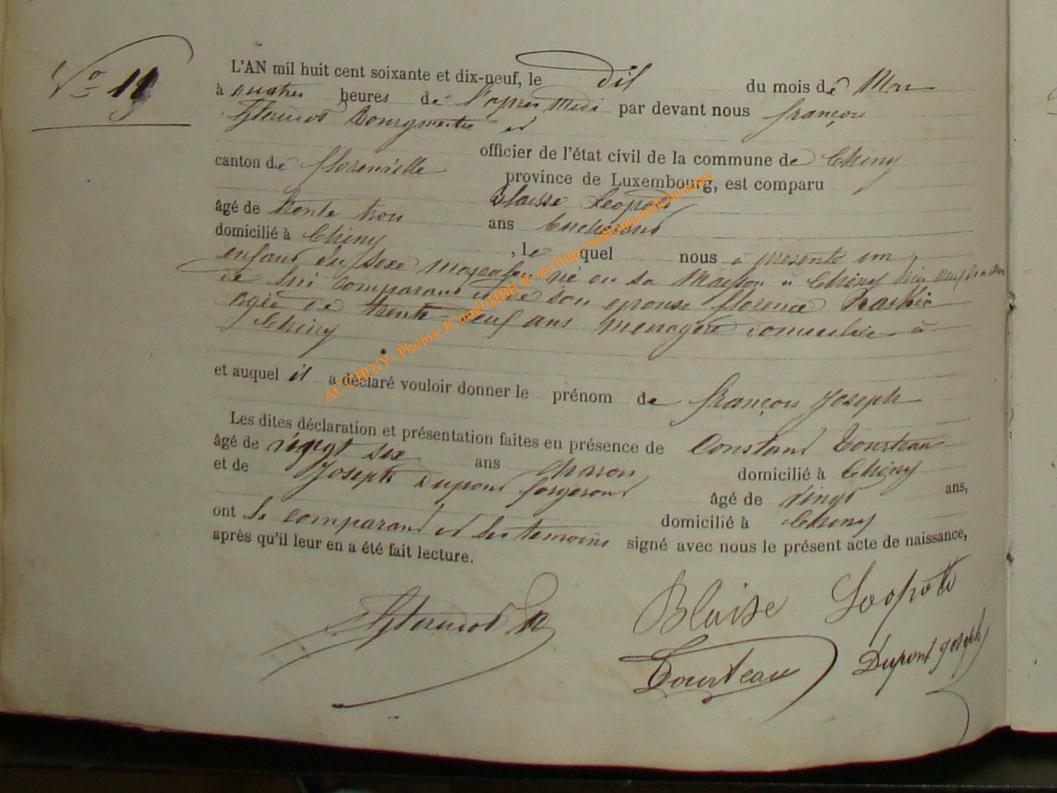 N° 19
L'AN mil huit cent soixante et dix-neuf, le dix du mois de Mai
à quatre heures de l'après Midi par devant nous françois
Bourgmestre et
officier de l'état civil de la commune de Chiny
canton de florenville province de Luxembourg, est comparu
Blaisse Léopold
âgé de trente trois ans
domicilié à Chiny , le quel nous a présenté un
enfant du sexe Masculin né en sa Maison à Chiny
de lui comparant et de son épouse florence
agée de trente ans menagère domiciliée à
Chiny
et auquel il a déclaré vouloir donner le prénom de françois Joseph
Les dites déclaration et présentation faites en présence de Constant Tourteau
âgé de vingt six ans charon domicilié à Chiny
et de Joseph Dupont forgeron âgé de vingt ans,
domicilié à Chiny
ont le comparant et les temoins signé avec nous le présent acte de naissance,
après qu'il leur en a été fait lecture.
Blaise Leopold
Tourteau Dupont Joseph
AC CHINY - Photos JCernal HBH © via http://